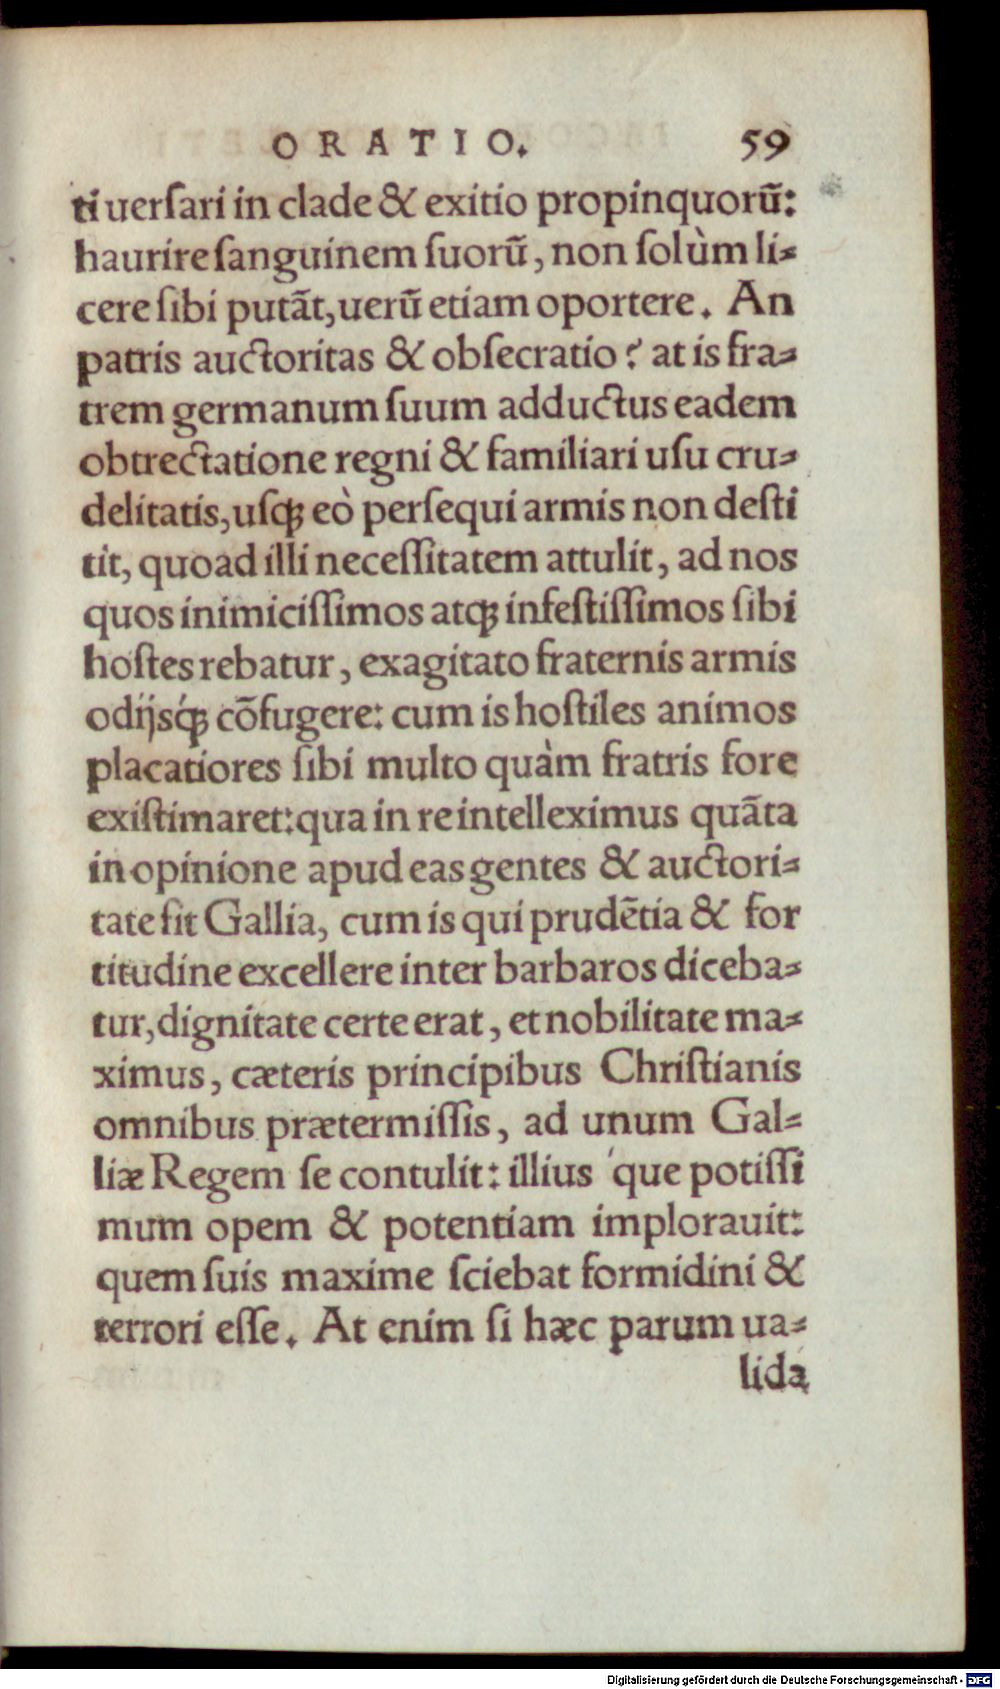 ORATIO. 59
ti uerſari in clade & exitio propinquorũ:
haurire ſanguinem ſuorũ, non ſolùm li-
cere ſibi putãt, uerũ etiam oportere. An
patris auctoritas & obſecratio? at is fra-
trem germanum ſuum adductus eadem
obtrectatione regni & familiari uſu cru-
delitatis, uſqꝫ eò perſequi armis non deſti
tit, quoad illi neceſſitatem attulit, ad nos
quos inimiciſſimos atqꝫ infeſtiſſimos ſibi
hoſtes rebatur, exagitato fraternis armis
odijsq́ꝫ cõfugere: cum is hoſtiles animos
placatiores ſibi multo quàm fratris fore
exiſtimaret: qua in re intelleximus quãta
in opinione apud eas gentes & auctori-
tate ſit Gallia, cum is qui prudẽtia & for
titudine excellere inter barbaros diceba-
tur, dignitate certe erat, et nobilitate ma-
ximus, cæteris principibus Chriſtianis
omnibus prætermiſſis, ad unum Gal-
liæ Regem ſe contulit: illius 'que potiſſi
mum opem & potentiam implorauit:
quem ſuis maxime ſciebat formidini &
terrori eſſe. At enim ſi hæc parum ua-
lida
Digitalisierung gefördert durch die Deutsche Forschungsgemeinschaft - DFG